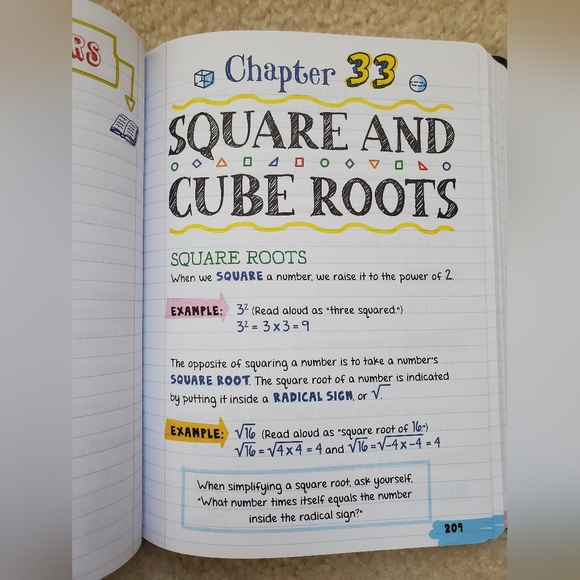 RS
Chapter 33
SQUARE AND
CUBE ROOTS
SQUARE ROOTS
When we SQUARE a number, we raise it to the power of 2.
EXAMPLE: 3² (Read aloud as "three squared.")
3² = 3 x 3 = 9
The opposite of squaring a number is to take a number's
SQUARE ROOT. The square root of a number is indicated
by putting it inside a RADICAL SIGN, or √‾.
EXAMPLE: √16 (Read aloud as "square root of 16.")
√16 = √4 x 4 = 4 and √16 = √-4 x -4 = 4
When simplifying a square root, ask yourself,
"What number times itself equals the number
inside the radical sign?"
209